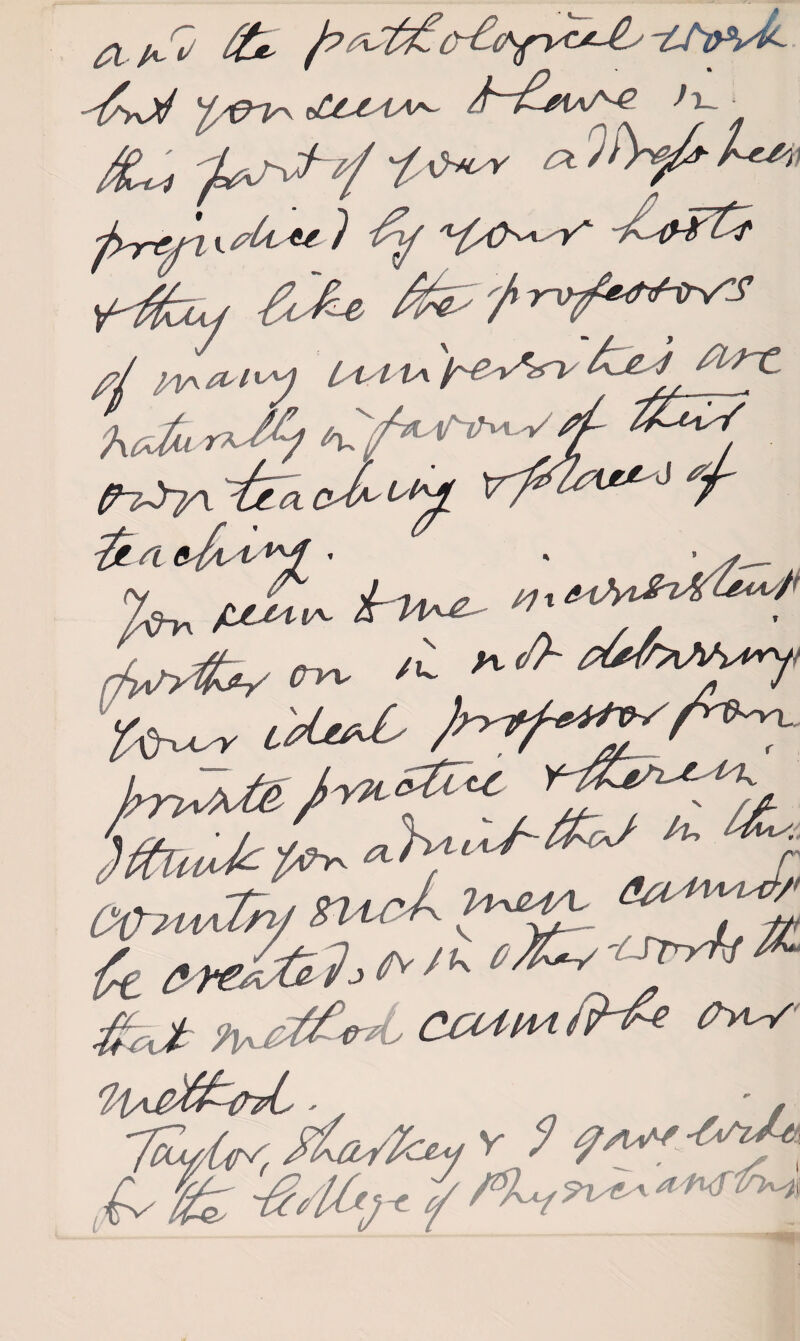 and the pathological work
but you seem to have in
this part of your address been
prejudiced by your hosts
& they like the professors
of many universities are
naturally in favour of their
own teaching & places of
teaching.
You seem to me inconsistent
further on in not debarring
your ideal professor from
private practice & therein
I think you admit that in this
country such men cannot
be created, or in other words th
that method cannot be our
method.
Taylor, Sharkey & I gave evide
for the College of Physicians